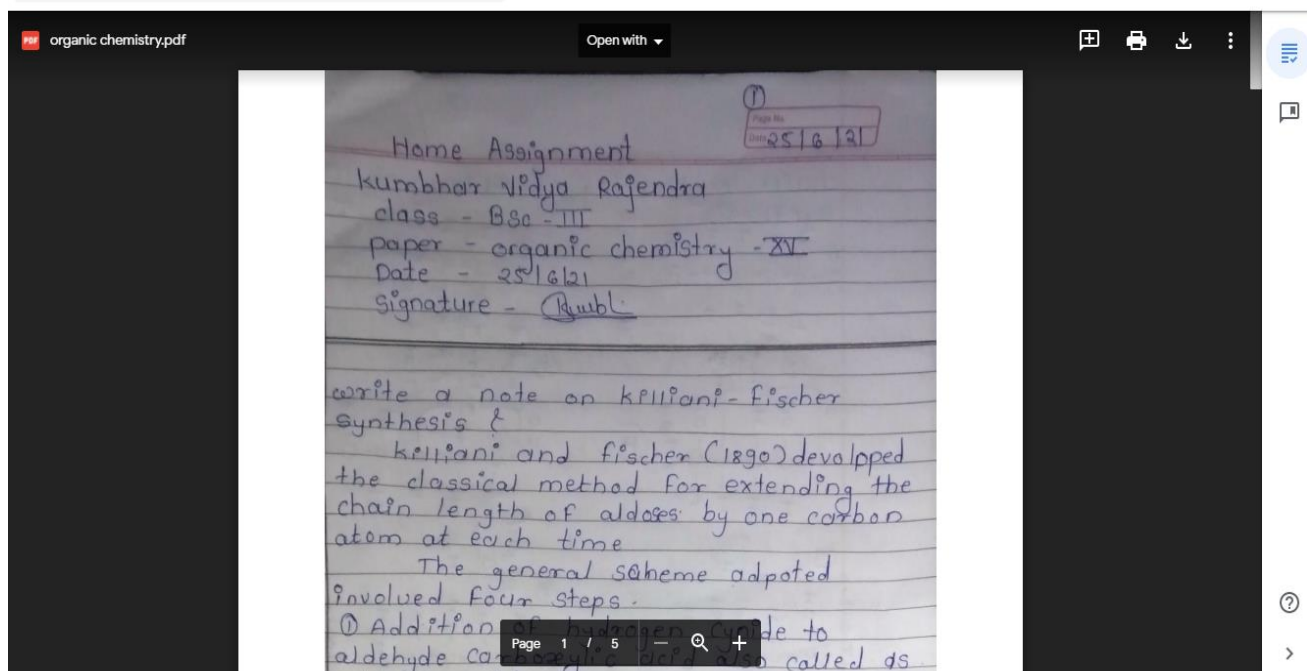 PDF organic chemistry.pdf
Open with
①
Page No.
Date 25/6/21
Home Assignment
Kumbhar Vidya Rajendra
class - BSc - III
paper - organic chemistry - XV
Date - 25/6/21
signature -
write a note on killiani-fischer
synthesis ?
killiani and fischer (1890) devolpped
the classical method for extending the
chain length of aldoses by one carbon
atom at each time
The general scheme adpoted
involved four steps.
① Addition of hydrogen cynide to
aldehyde carboxylic acid also called as
Page 1 / 5